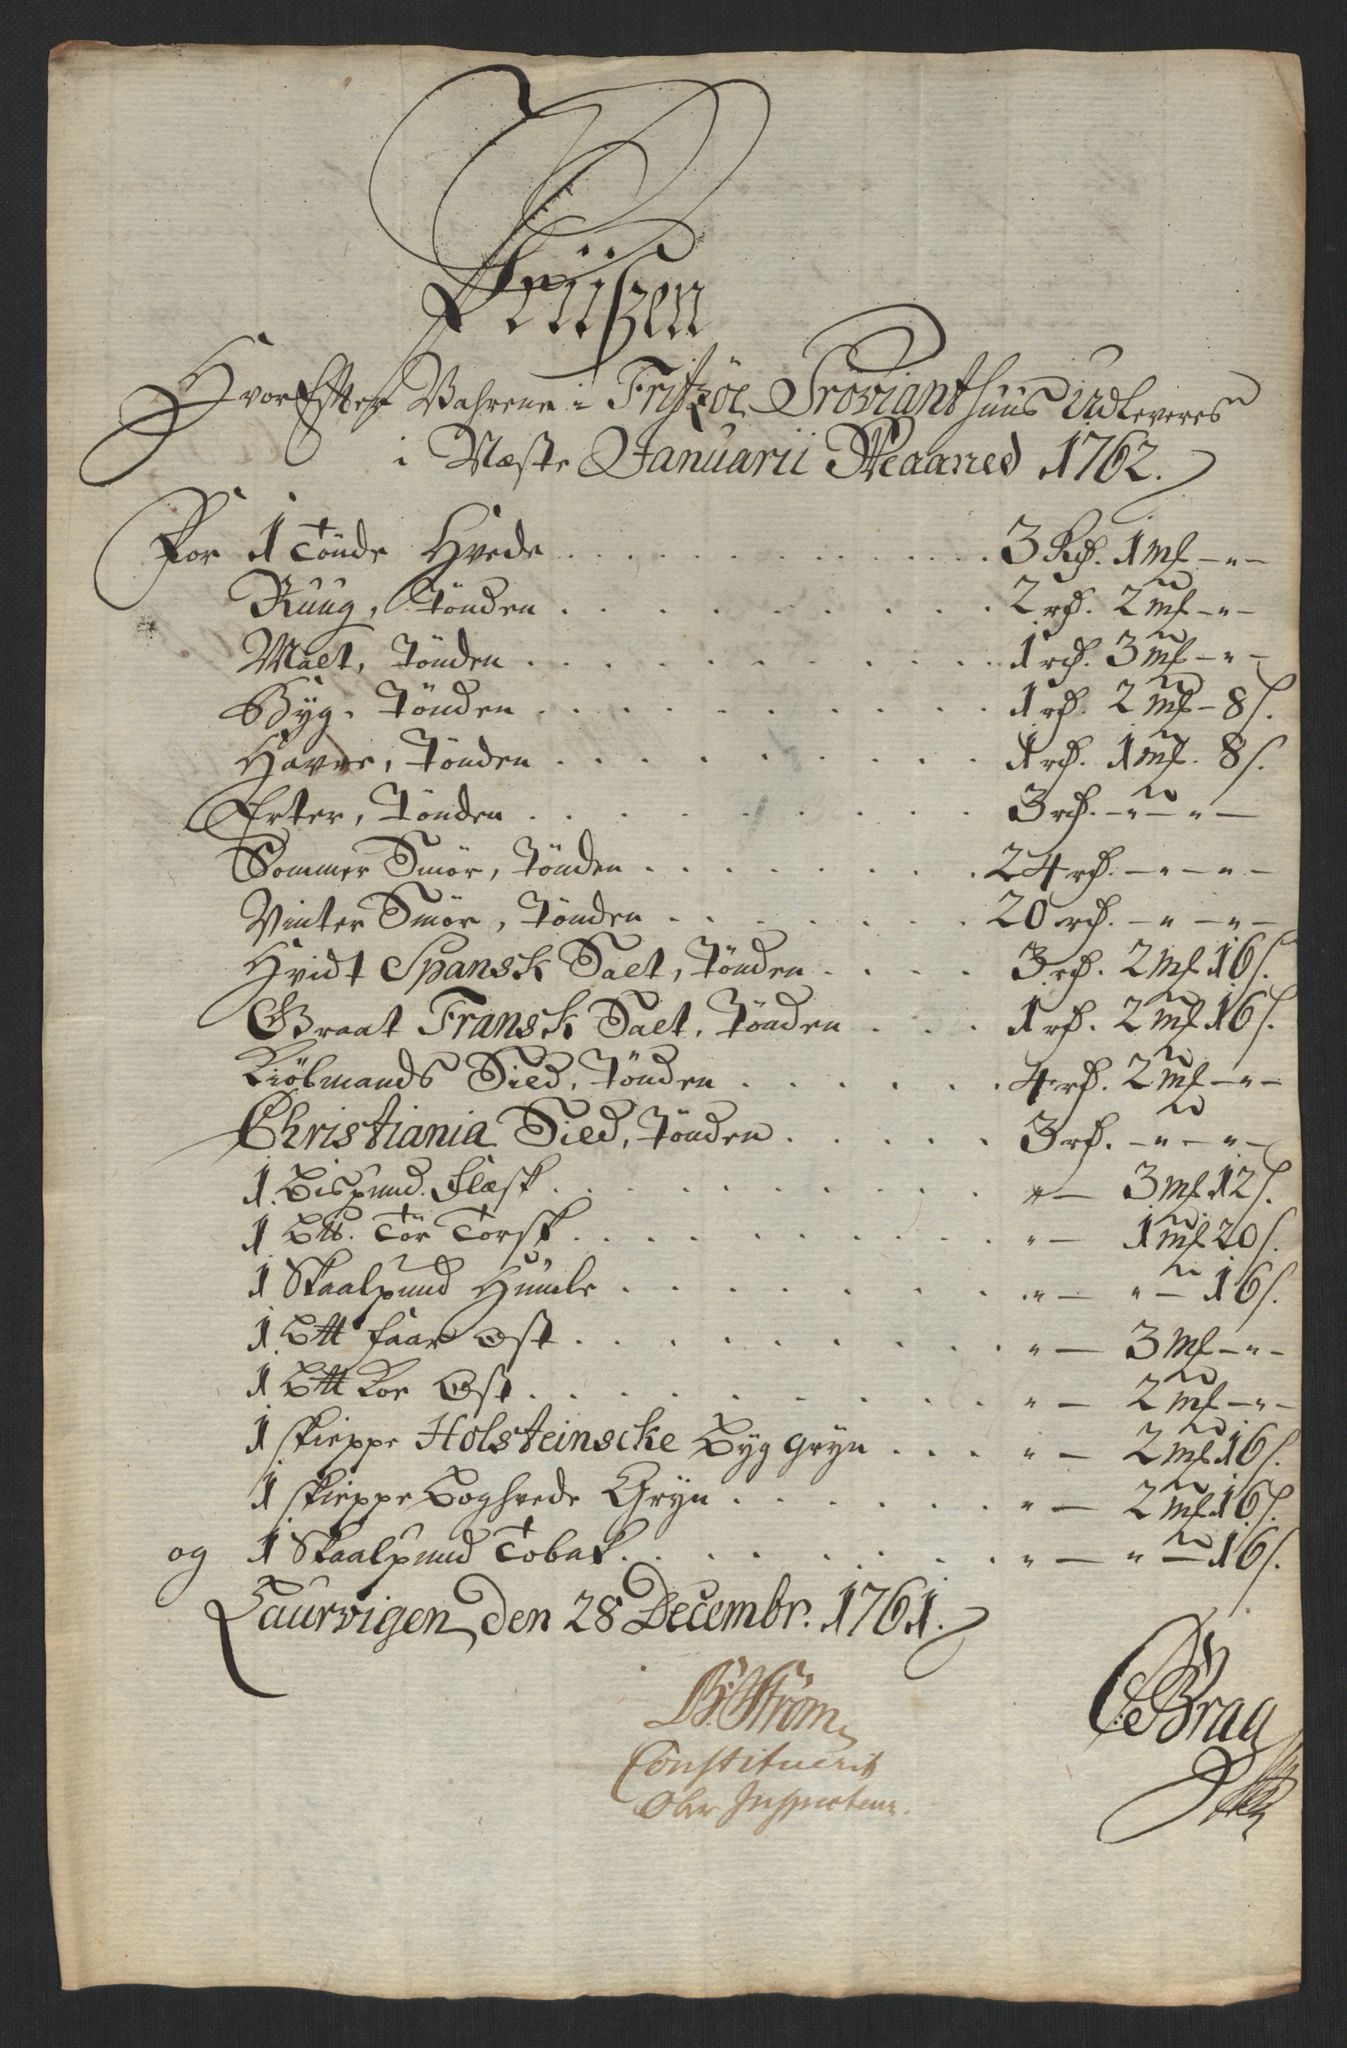 Priisen
Hvorefter Vahrene i Fritzöe Provianthuus Udleveres
i Næste Januarii Maaned 1762.
For 1 Tönde Hvede . . . 3 Rd. 1 mk - " -
Ruug, Tönden . . . 2 rd. 2 mk - " -
Malt, Tönden . . . 1 rd. 3 mk - " -
Byg, Tönden . . . 1 rd. 2 mk - 8 s.
Havre, Tönden . . . 1 rd. 1 mk. 8 s.
Erter, Tönden . . . 3 rd. - " - " -
Sommer Smör, Tönden . . . 24 rd. - " - " -
Vinter Smör, Tönden . . . 20 rd. - " - " -
Hvidt Spansk Salt, Tönden . . . 3 rd. 2 mk 16 s.
Graat Fransk Salt, Tönden . . . 1 rd. 2 mk 16 s.
Kiöbmands Sild, Tönden . . . 4 rd. 2 mk - " -
Christiania Sild, Tönden . . . 3 rd. - " - " -
1 Bispund. Flæsk . . . " - 3 mk 12 s.
1 B℔. Tör Torsk . . . " - 1 mk 20 s.
1 Skaalpund Humle . . . " - " - 16 s.
1 B℔ Faar Ost . . . " - 3 mk - " -
1 B℔ Koe Ost . . . " - 2 mk - " -
1 skieppe Holsteinscke Byg gryn . . . " - 2 mk 16 s.
1 skieppe Boghvede Gryn . . . " - 2 mk 16 s.
og 1 Skaalpund Tobak . . . " - " - 16 s.
Laurvigen den 28 Decembr. 1761.
Ström
Constituerit
Ober Inspecteur.
Brag